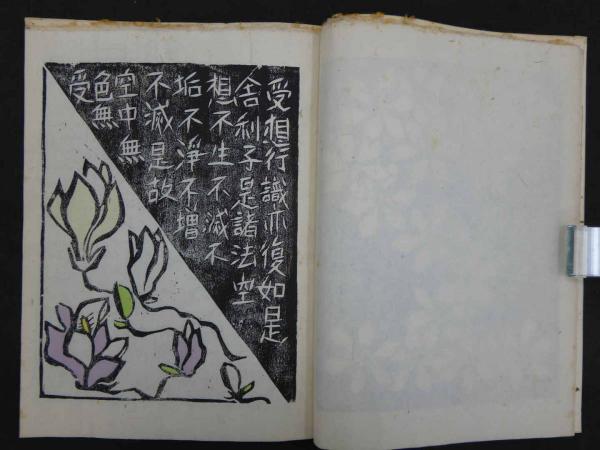 受想行識亦復如是
舎利子是諸法空
想不生不滅不
垢不淨不增
不滅是故
空中無
色無
受